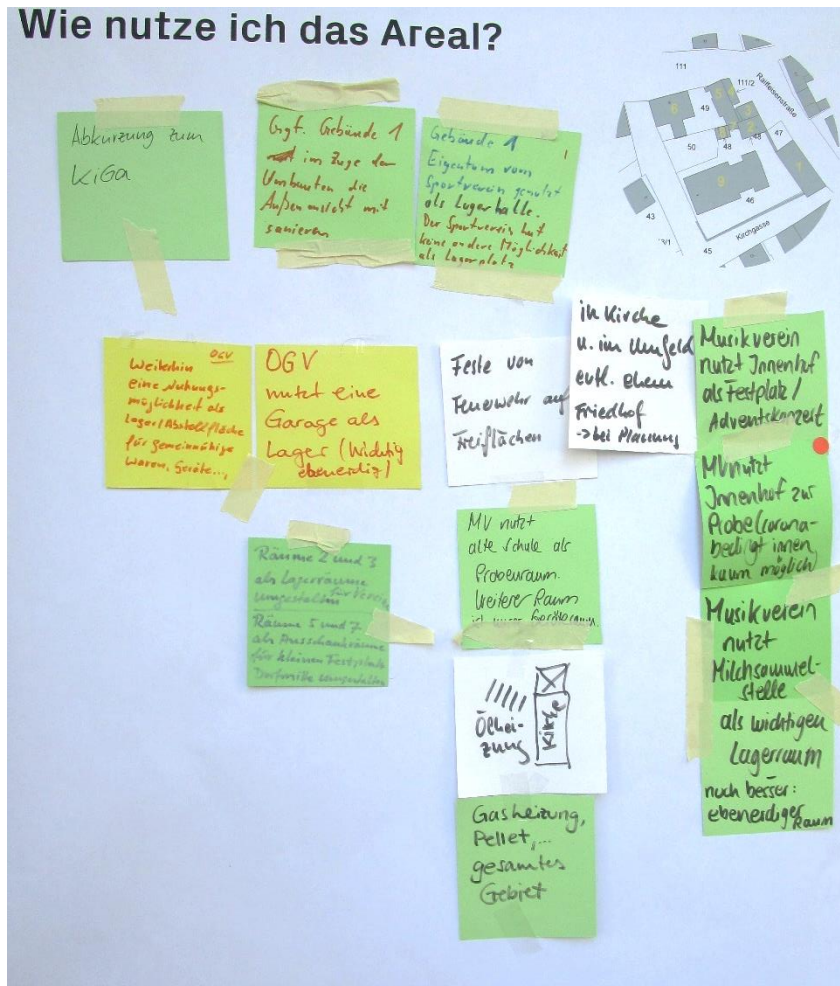 Wie nutze ich das Areal?
Abkürzung zum
KiGa
Ggf. Gebäude 1
im Zuge der
Umbauten die
Außenansicht mit
sanieren
Gebäude 1
Eigentum vom
Sportverein genutzt
als Lagerhalle.
Der Sportverein hat
keine andere Möglichkeit
als Lagerplatz
111
111/2
Raiffeisenstraße
49
50
48
48
47
46
43
45
Kirchgasse
OGV
Weiterhin
eine Nutzungs-
möglichkeit als
Lager/Abstellfläche
für gemeinnützige
Waren, Geräte...,
OGV
nutzt eine
Garage als
Lager (Wichtig
ebenerdig)
Feste von
Feuerwehr auf
Freiflächen
in Kirche
u. im Umfeld
evtl. ehem
Friedhof
-> bei Planung
Musikverein
nutzt Innenhof
als Festplatz/
Adventskonzert
MV nutzt
Innenhof zur
Probe (corona-
bedingt innen
kaum möglich)
Musikverein
nutzt
Milchsammel-
stelle
als wichtigen
Lagerraum
noch besser:
ebenerdiger
Raum
Räume 2 und 3
als Lagerräume
umgestalten für Vereine
Räume 5 und 7
als Ausschankräume
für kleinen Festplatz
Dorfmitte umgestalten
MV nutzt
alte Schule als
Proberaum.
Weiterer Raum
ist unser Geräteraum
Ölhei-
zung
Kirche
Gasheizung,
Pellet,...
gesamtes
Gebiet